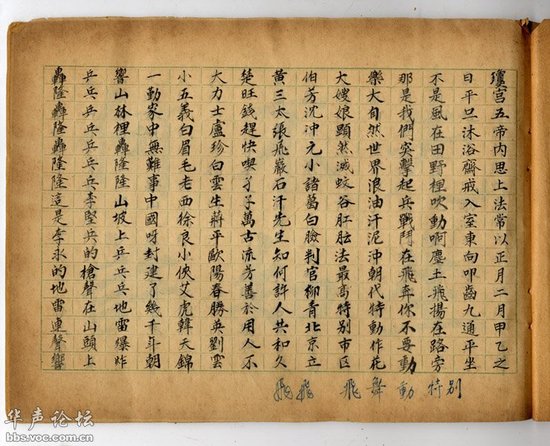 瓊宮五帝內思上法常以正月二月甲乙之
日平旦沐浴齋戒入室東向叩齒九通平坐
不是風在田野裡吹動啊塵土飛揚在路旁
那是我們突擊起兵戰鬥在飛奔你不要動
樂大自然世界浪油汗泥沖朝代特動作花
大嫂娘顯然滅蚊谷肛肱法最高特別市区
伯芳沈沖元小諸葛白臉判官御青北京立
黃三太張飛巖石汗先生知何許人共和久
楚旺錢趕快喫孑孑萬古流芳善於用人不
大力士盧珍白雲生蔣平歐陽春勝英劉雲
小五義白眉毛老西徐良小俠艾虎韓天錦
一勤家中無難事中國呀封建了幾千年朝
響山林裡轟隆隆山坡上乒乓乒乓地雷爆炸
乒乓乒乓乒乓李堅兵的槍聲在山頭上
轟隆轟隆轟隆隆這是李永的地雷連聲響
飛飛 飛舞動特別
华声论坛
bbs.voc.com.cn